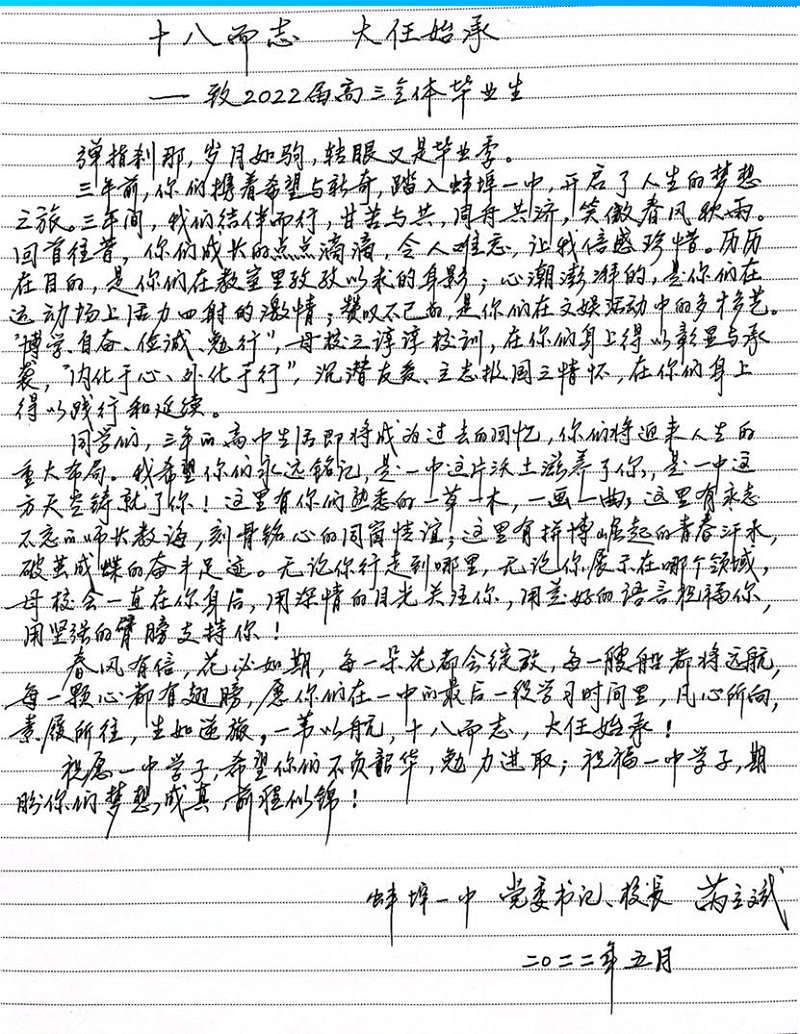 十八而志 大任始承
——致2022届高三全体毕业生
弹指刹那,岁月如驹,转眼又是毕业季。
三年前,你们携着希望与新奇,踏入蚌埠一中,开启了人生的梦想
之旅。三年间,我们结伴而行,甘苦与共,同舟共济,笑傲春风秋雨。
回首往昔,你们成长的点点滴滴,令人难忘,让我倍感珍惜。历历
在目的,是你们在教室里孜孜以求的身影;心潮澎湃的,是你们在
运动场上活力四射的激情;赞叹不已的,是你们在文娱活动中的多才多艺。
“博学、自奋、俭诚、勉行”,母校之谆谆校训,在你们身上得以彰显与承
袭,“内化于心、外化于行”,沉潜友爱、立志报国之情怀,在你们身上
得以践行和延续。
同学们,三年的高中生活即将成为过去的回忆,你们将迎来人生的
重大布局。我希望你们永远铭记,是一中这片沃土滋养了你,是一中这
方天空铸就了你!这里有你们熟悉的一草一木,一画一曲;这里有永志
不忘的师长教诲,刻骨铭心的同窗情谊;这里有拼搏崛起的青春汗水,
破茧成蝶的奋斗足迹。无论你行走到哪里,无论你展示在哪个领域,
母校会一直在你身后,用深情的目光关注你,用美好的语言祝福你,
用坚强的臂膀支持你!
春风有信,花必如期,每一朵花都会绽放,每一艘船都将远航,
每一颗心都有翅膀,愿你们在一中的最后一段学习时间里,凡心所向,
素履所往,生如逆旅,一苇以航,十八而志,大任始承!
祝愿一中学子,希望你们不负韶华,勉力进取;祝福一中学子,期
盼你们梦想成真,前程似锦!
蚌埠一中 党委书记、校长 芮立斌
二〇二二年五月